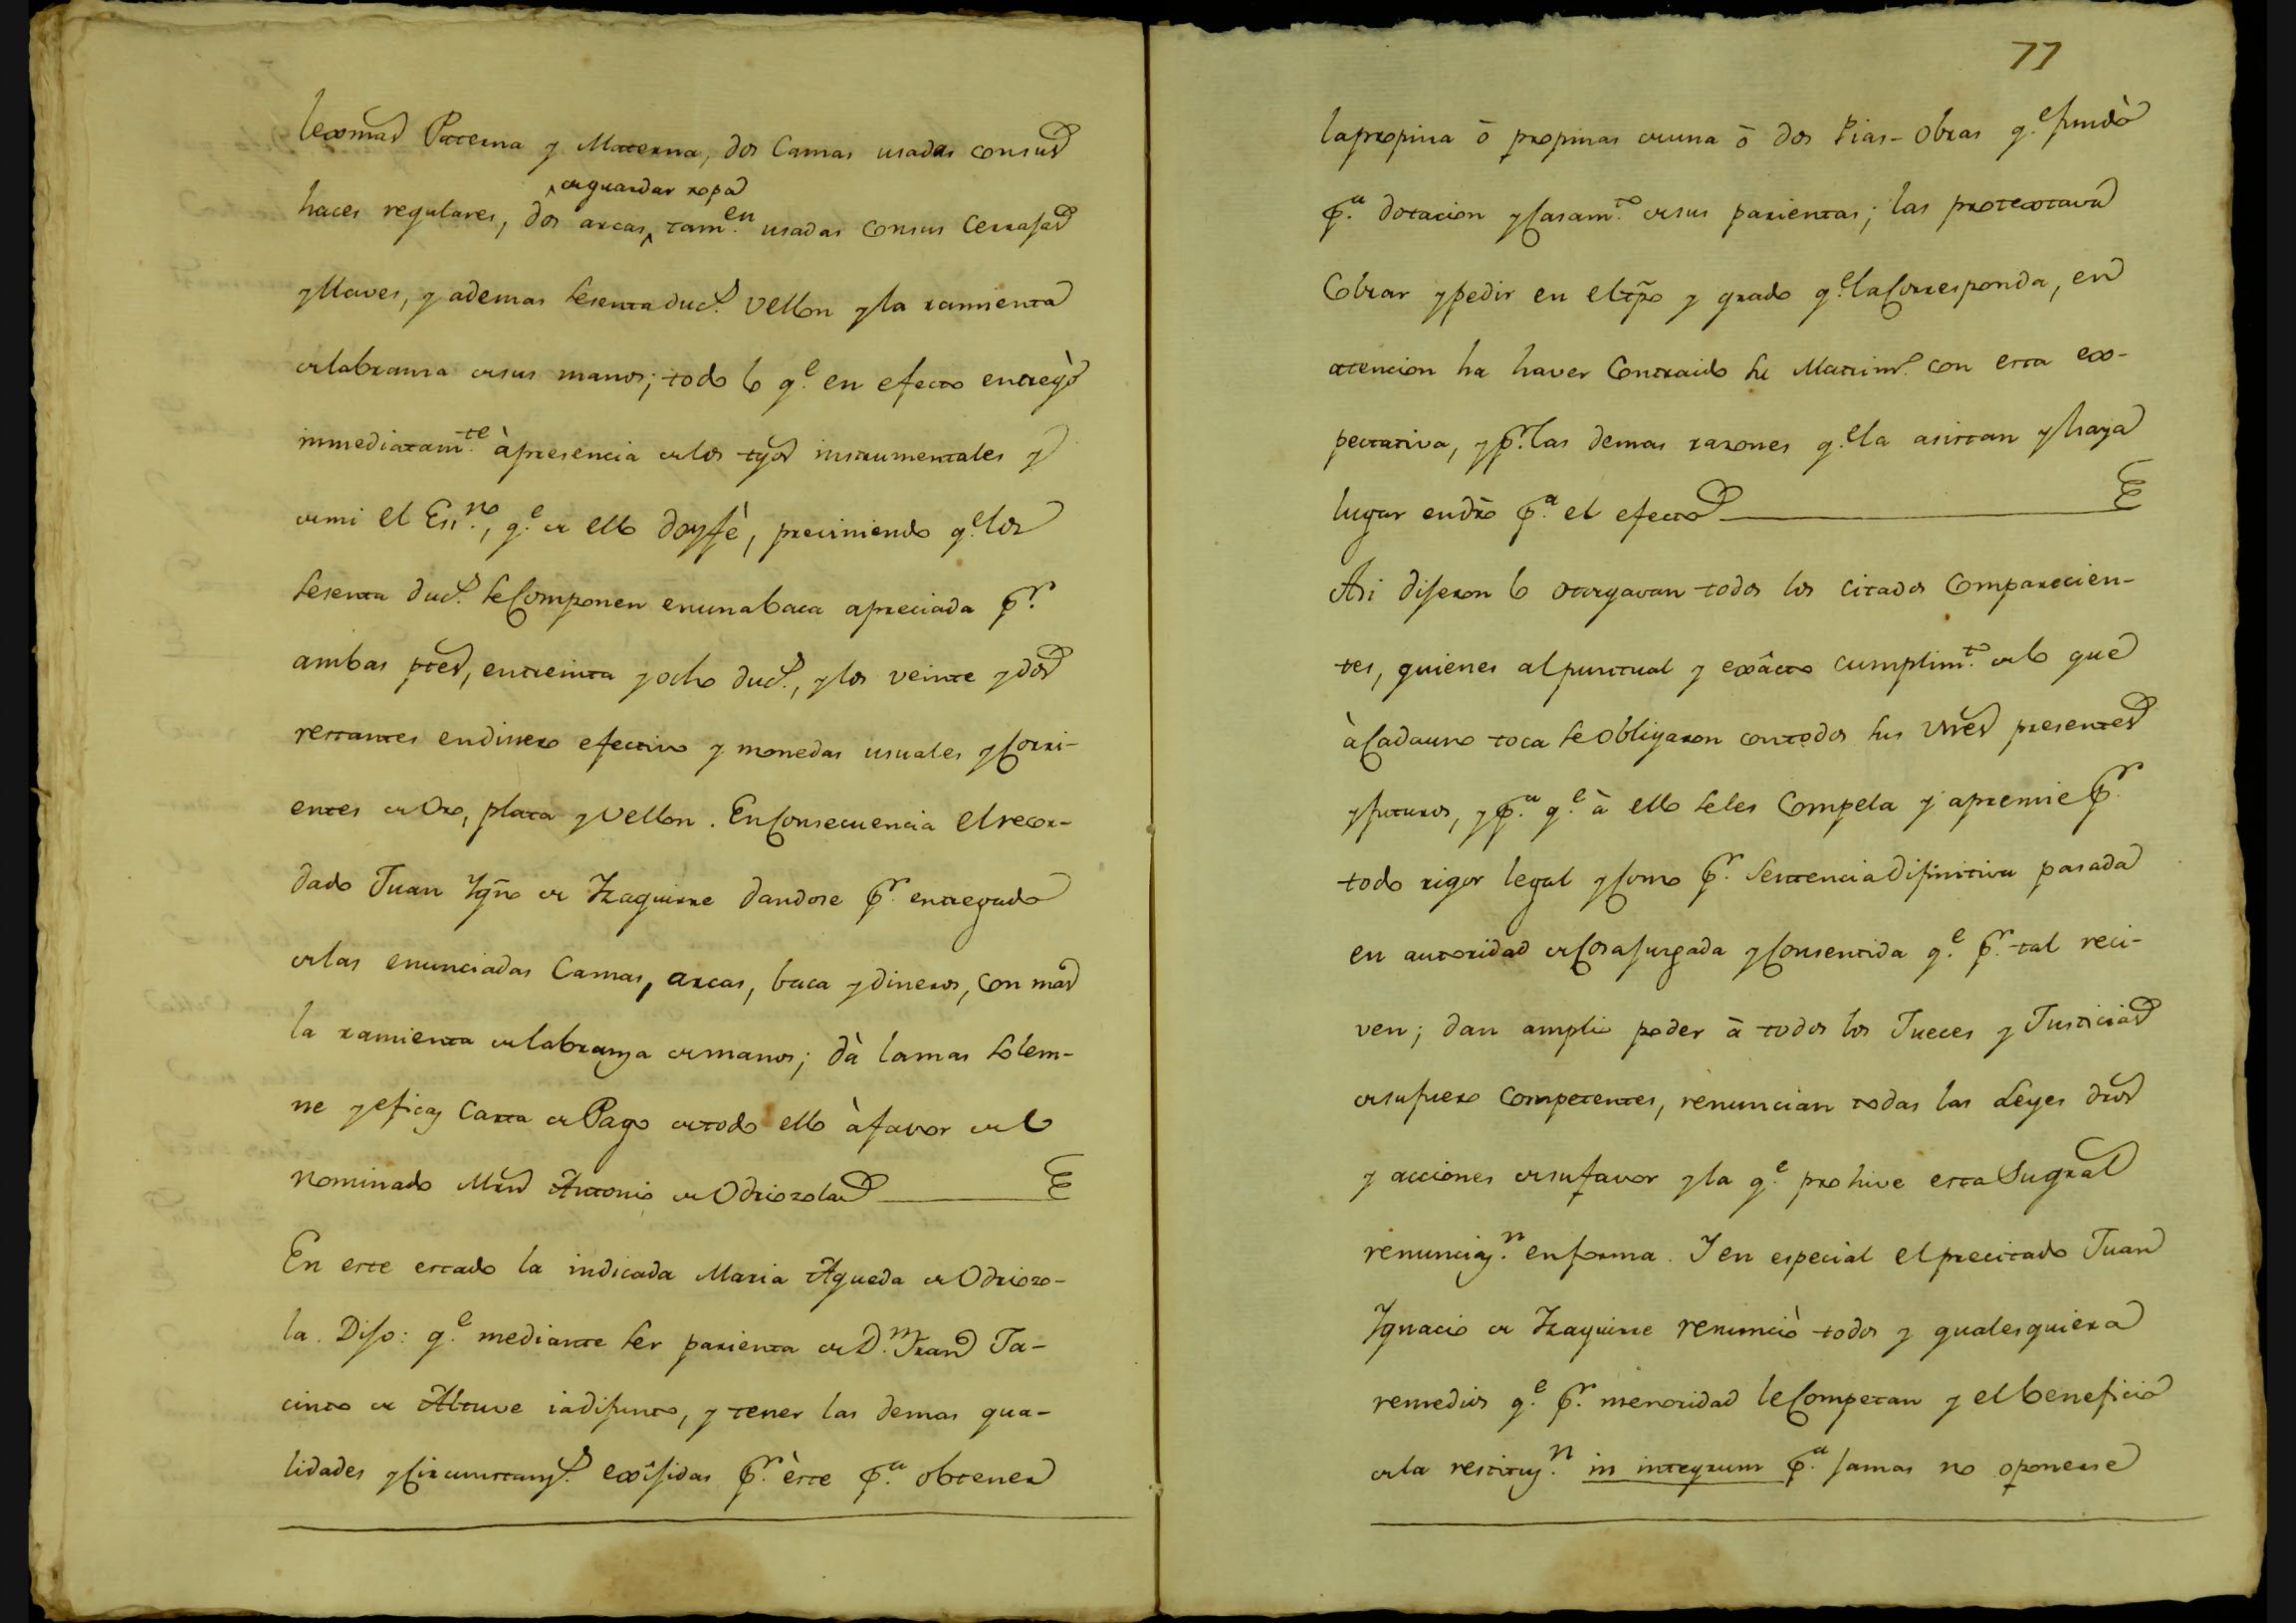 lexmas Paterna y Materna, dos Camas usadas consus
de guardar ropa
haces regulares, dos arcas, tam.en usadas consus Cerrajas
y llaves, y ademas Sesenta duc.s Vellon y la ramienta
de labranza de sus manos; todo lo q.e en efecto entregò
inmediatam.te à presencia de los tgos instrumentales y
de mi el Es.no, q.e de ello doy fè, previniendo q.e los
Sesenta duc.s se Componen en una baca apreciada p.r
ambas ptes, en treinta y ocho duc.s, y los veinte y dos
restantes en dinero efectivo y monedas usuales y Corri-
entes de Oro, plata y Vellon. En Consecuencia el recor-
dado Juan Ygno de Yzaguirre dandose p.r entregado
de las enunciadas Camas, arcas, baca y dineros, con mas
la ramienta de labranza de manos; dà la mas Solem-
ne y eficaz Carta de Pago de todo ello à favor del
nominado Mrn Antonio de Odriozola
En este estado la indicada Maria Agueda de Odriozo-
la. Dijo: q.e mediante Ser parienta de D.n Fran Ja-
cinto de Altuve ia difunto, y tener las demas qua-
lidades y Circunstanz.s exijidas p.r èste p.a obtener
77
la propina ō propinas de una ō dos Pias-Obras q.e fundò
p.a dotacion y Casam.to de sus parientas; las protextava
Cobrar y pedir en el tpo y grado q.e la Corresponda, en
atencion ha haver Contraido Su Matrim.o con esta ex-
pectativa, y p.r las demas razones q.e la asistan y haya
lugar en dro p.a el efecto
Asi dijeron lo otorgavan todos los citados Comparecien-
tes, quienes al puntual y exâcto cumplim.to de lo que
à Cada uno toca se Obligaron con todos sus Vnes presentes
y futuros, y p.a q.e à ello Seles Compela y apremie p.r
todo rigor legal y Como p.r Sentencia Difinitiva pasada
en autoridad de Cosa Jurgada y Consentida q.e p.r tal reci-
ven; dan amplio poder ā todos los Jueces y Justicias
de su fuero Competentes, renuncian todas las Leyes dros
y acciones de su favor y la q.e prohive esta Su gral
renunciaz.n en forma. Y en especial el precitado Juan
Ygnacio de Yzaguirre renunciò todos y qualesquiera
remedios q.e p.r menoridad le Competan y el beneficio
de la restituz.n in integrum p.a Jamas no oponerse